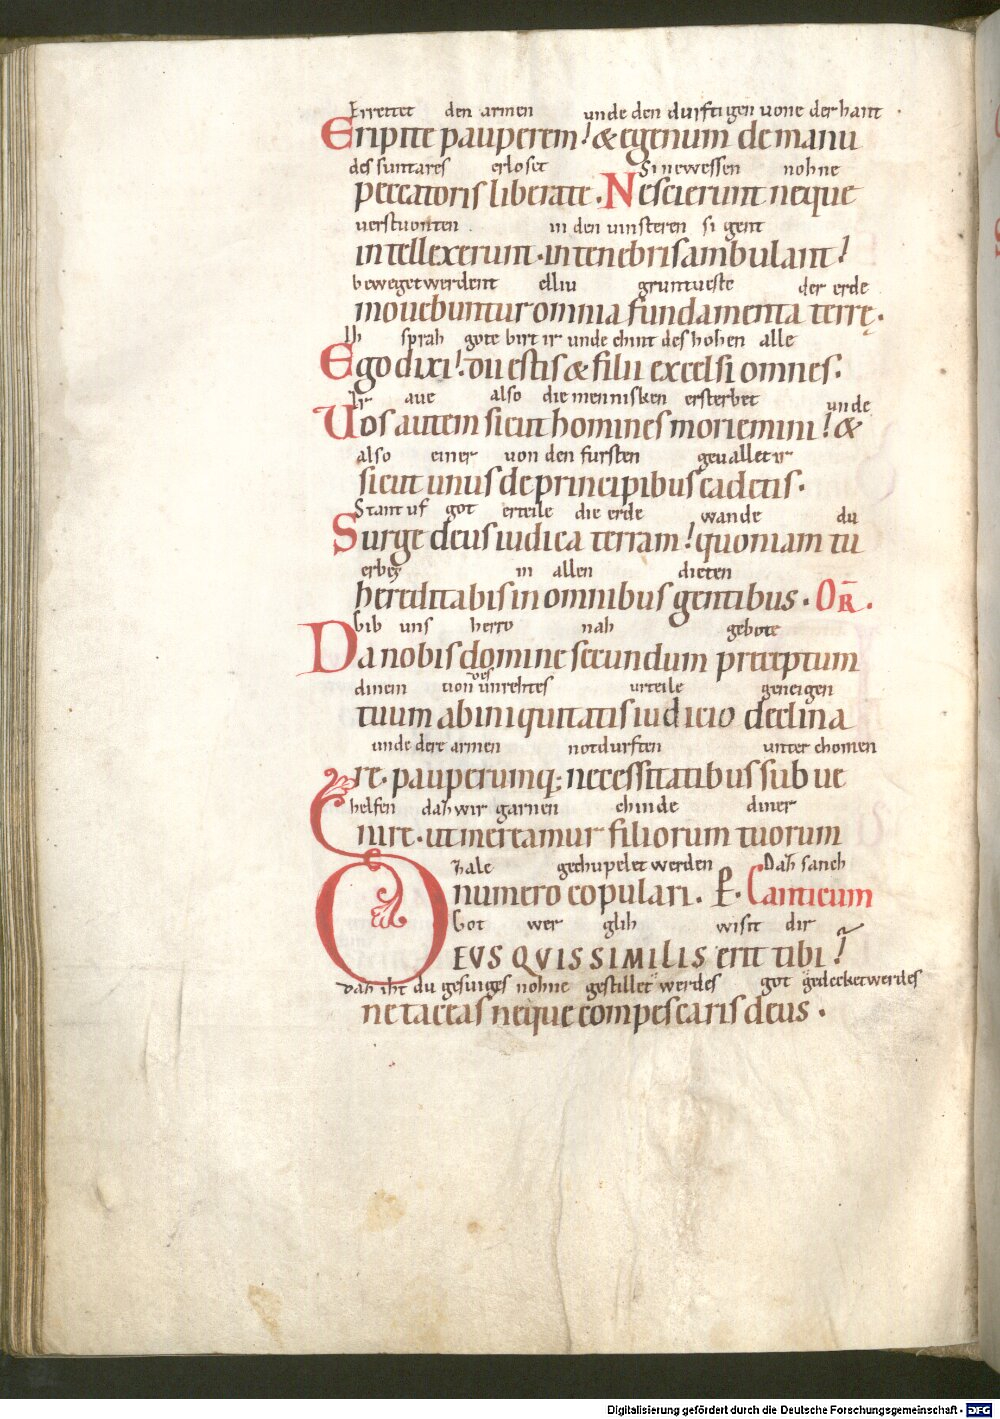 Errettet den armen unde den durftigen uone der hant
Eripite pauperem! & egenum de manu
des suntares erloset Si newessen nohne
peccatoris liberate. Nescierunt neque
uerstuonten in den uinsteren si gent
intellexerunt. in tenebris ambulant!
beweget werdent elliu gruntueste der erde
mouebuntur omnia fundamenta terrę.
Ih sprah gote birt ir unde chint des hohen alle
Ego dixi! dii estis & filii excelsi omnes.
Ir aue also die mennisken ersterbet unde
Uos autem sicut homines moriemini! &
also einer von den fursten geuallet ir
sicut unus de principibus cadetis.
Stant uf got erteile die erde wande du
Surge deus iudica terram! quoniam tu
in allen dieten
hereditabis in omnibus gentibus. OR̄.
Gib uns herro nah gebote
Da nobis domine secundum preceptum
dinem uon unrehtes urteile geneigen
tuum ab iniquitatis iudicio declina
unde dere armen notdurften unter chomen
re. pauperumq; necessitatibus subue
helfen daz wir garnen chinde diner
nire. ut mereamur filiorum tuorum
zale gechupelet werden Daz sanch
numero copulari. P. Canticum
Got wer glih wirt dir
DEUS QUIS SIMILIS erit tibi!
daz iht du gesuiges nohne gestillet werdes got gedecket werdes
ne taceas neque compescaris deus.
Digitalisierung gefördert durch die Deutsche Forschungsgemeinschaft - DFG